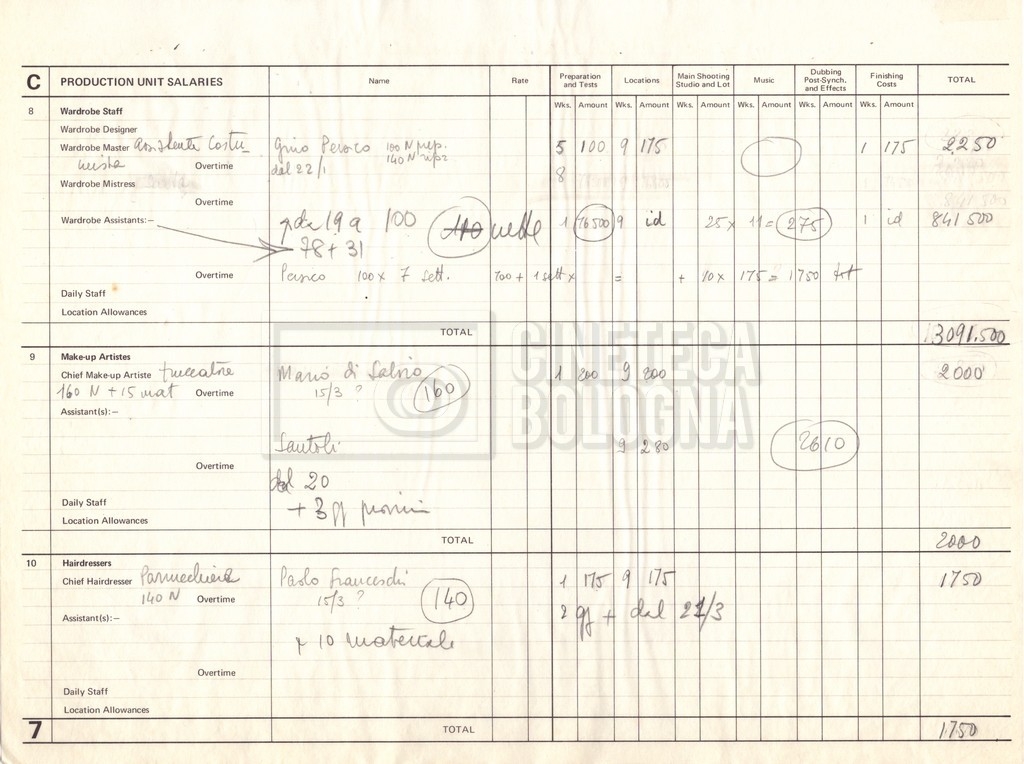 C PRODUCTION UNIT SALARIES Name Rate Preparation and Tests Locations Main Shooting Studio and Lot Music Dubbing Post-Synch. and Effects Finishing Costs TOTAL
Wks. Amount Wks. Amount Wks. Amount Wks. Amount Wks. Amount Wks. Amount
8 Wardrobe Staff
Wardrobe Designer
Wardrobe Master assistente Costu- 100 N prep. 5 100 9 175 1 175 2250
mista Overtime dal 22/1 140 N 8
Wardrobe Mistress
Overtime
Wardrobe Assistants:— 19 a 100 1 76500 9 id 25 x 11 = 275 1 id 841 500
78 + 31
Overtime 100 x 7 sett. 700 + 1 sett x = + 10 x 175 = 1750 tot
Daily Staff
Location Allowances
TOTAL 3091.500
9 Make-up Artistes
Chief Make-up Artiste truccatore Mario di Salvio 1 200 9 200 2000
160 N + 15 mat Overtime 15/3 ? 160
Assistant(s):—
Santoli 9 280 2610
Overtime
dal 20
Daily Staff + 3 gg
Location Allowances
TOTAL 2000
CINETECA
BOLOGNA
10 Hairdressers
Chief Hairdresser Parrucchiere Paolo Franceschi 1 175 9 175 1750
140 N Overtime 15/3 ? 140
Assistant(s):— 2 gg + dal 21/3
10 materiale
Overtime
Daily Staff
Location Allowances
7 TOTAL 1750